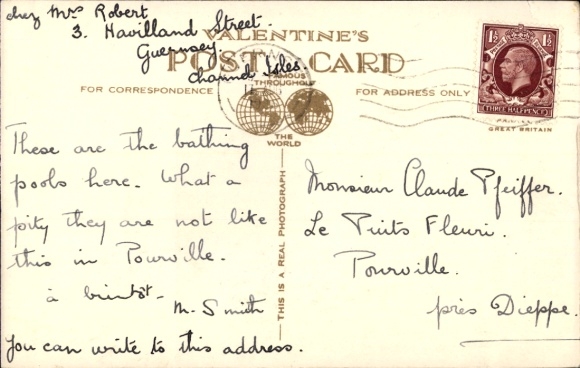 chez Mrs Robert
3. Havilland Street.
Guernsey.
Channel Isles.
VALENTINE'S
POST CARD
FAMOUS
THROUGHOUT
FOR CORRESPONDENCE
FOR ADDRESS ONLY
THE
WORLD
1½ 1½
THREE HALFPENCE
GREAT BRITAIN
These are the bathing
pools here. What a
pity they are not like
this in Pourville.
à bientôt-
M. Smith
You can write to this address.
THIS IS A REAL PHOTOGRAPH
Monsieur Claude Pfeiffer.
Le Puits Fleuri.
Pourville.
près Dieppe.